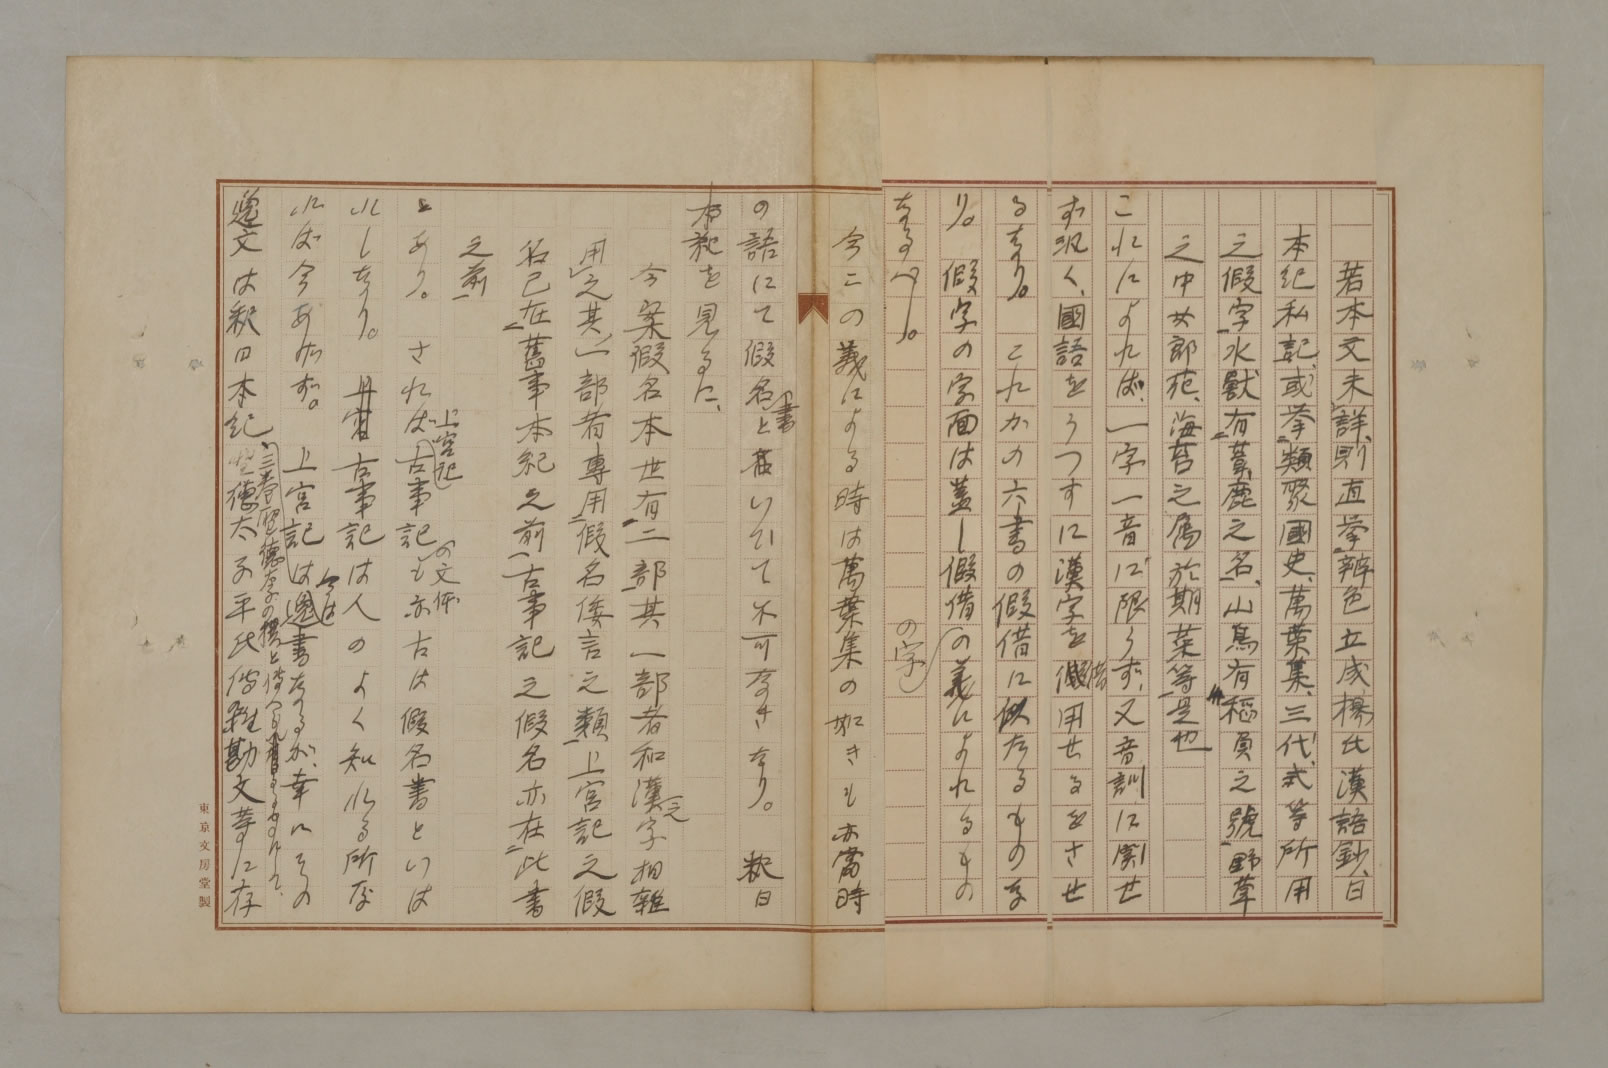 若本文未詳、則直挙辨色立成、楊氏漢語鈔、日
本紀私記、或挙類聚國史、萬葉集、三代式等所用
之假字、水獣有葦鹿之名、山鳥有稲負之號、野草
之中女郎花、海苔之属於期菜等是也
これによれば、一字一音に限らず、又音訓に関せ
ず汎く、國語をうつすに漢字を借用せるをさせ
るなり。これかの六書の假借に似たるものな
り。假字の字面は蓋し假借の字義によれるもの
なるべし。
今この義による時は萬葉集の如きも亦當時
の語にて假名書といひて不可なきなり。釈日
本紀を見るに、
今案假名本世有二部其一部者和漢之字相雜
用之其一部者専用假名倭言之類上宮記之假
名已在舊事本紀之前古事記之假名亦在此書
之前
とあり。されば上宮記古事記の文体も亦古は假名書といは
れしなり。古事記は人のよく知れる所な
れば今あげず。上宮記は今は逸書なるが、幸にその
三巻聖徳太子の撰と傳へ
逸文は釈日本紀聖徳太子平氏傳雜勘文等に存
東京文房堂製